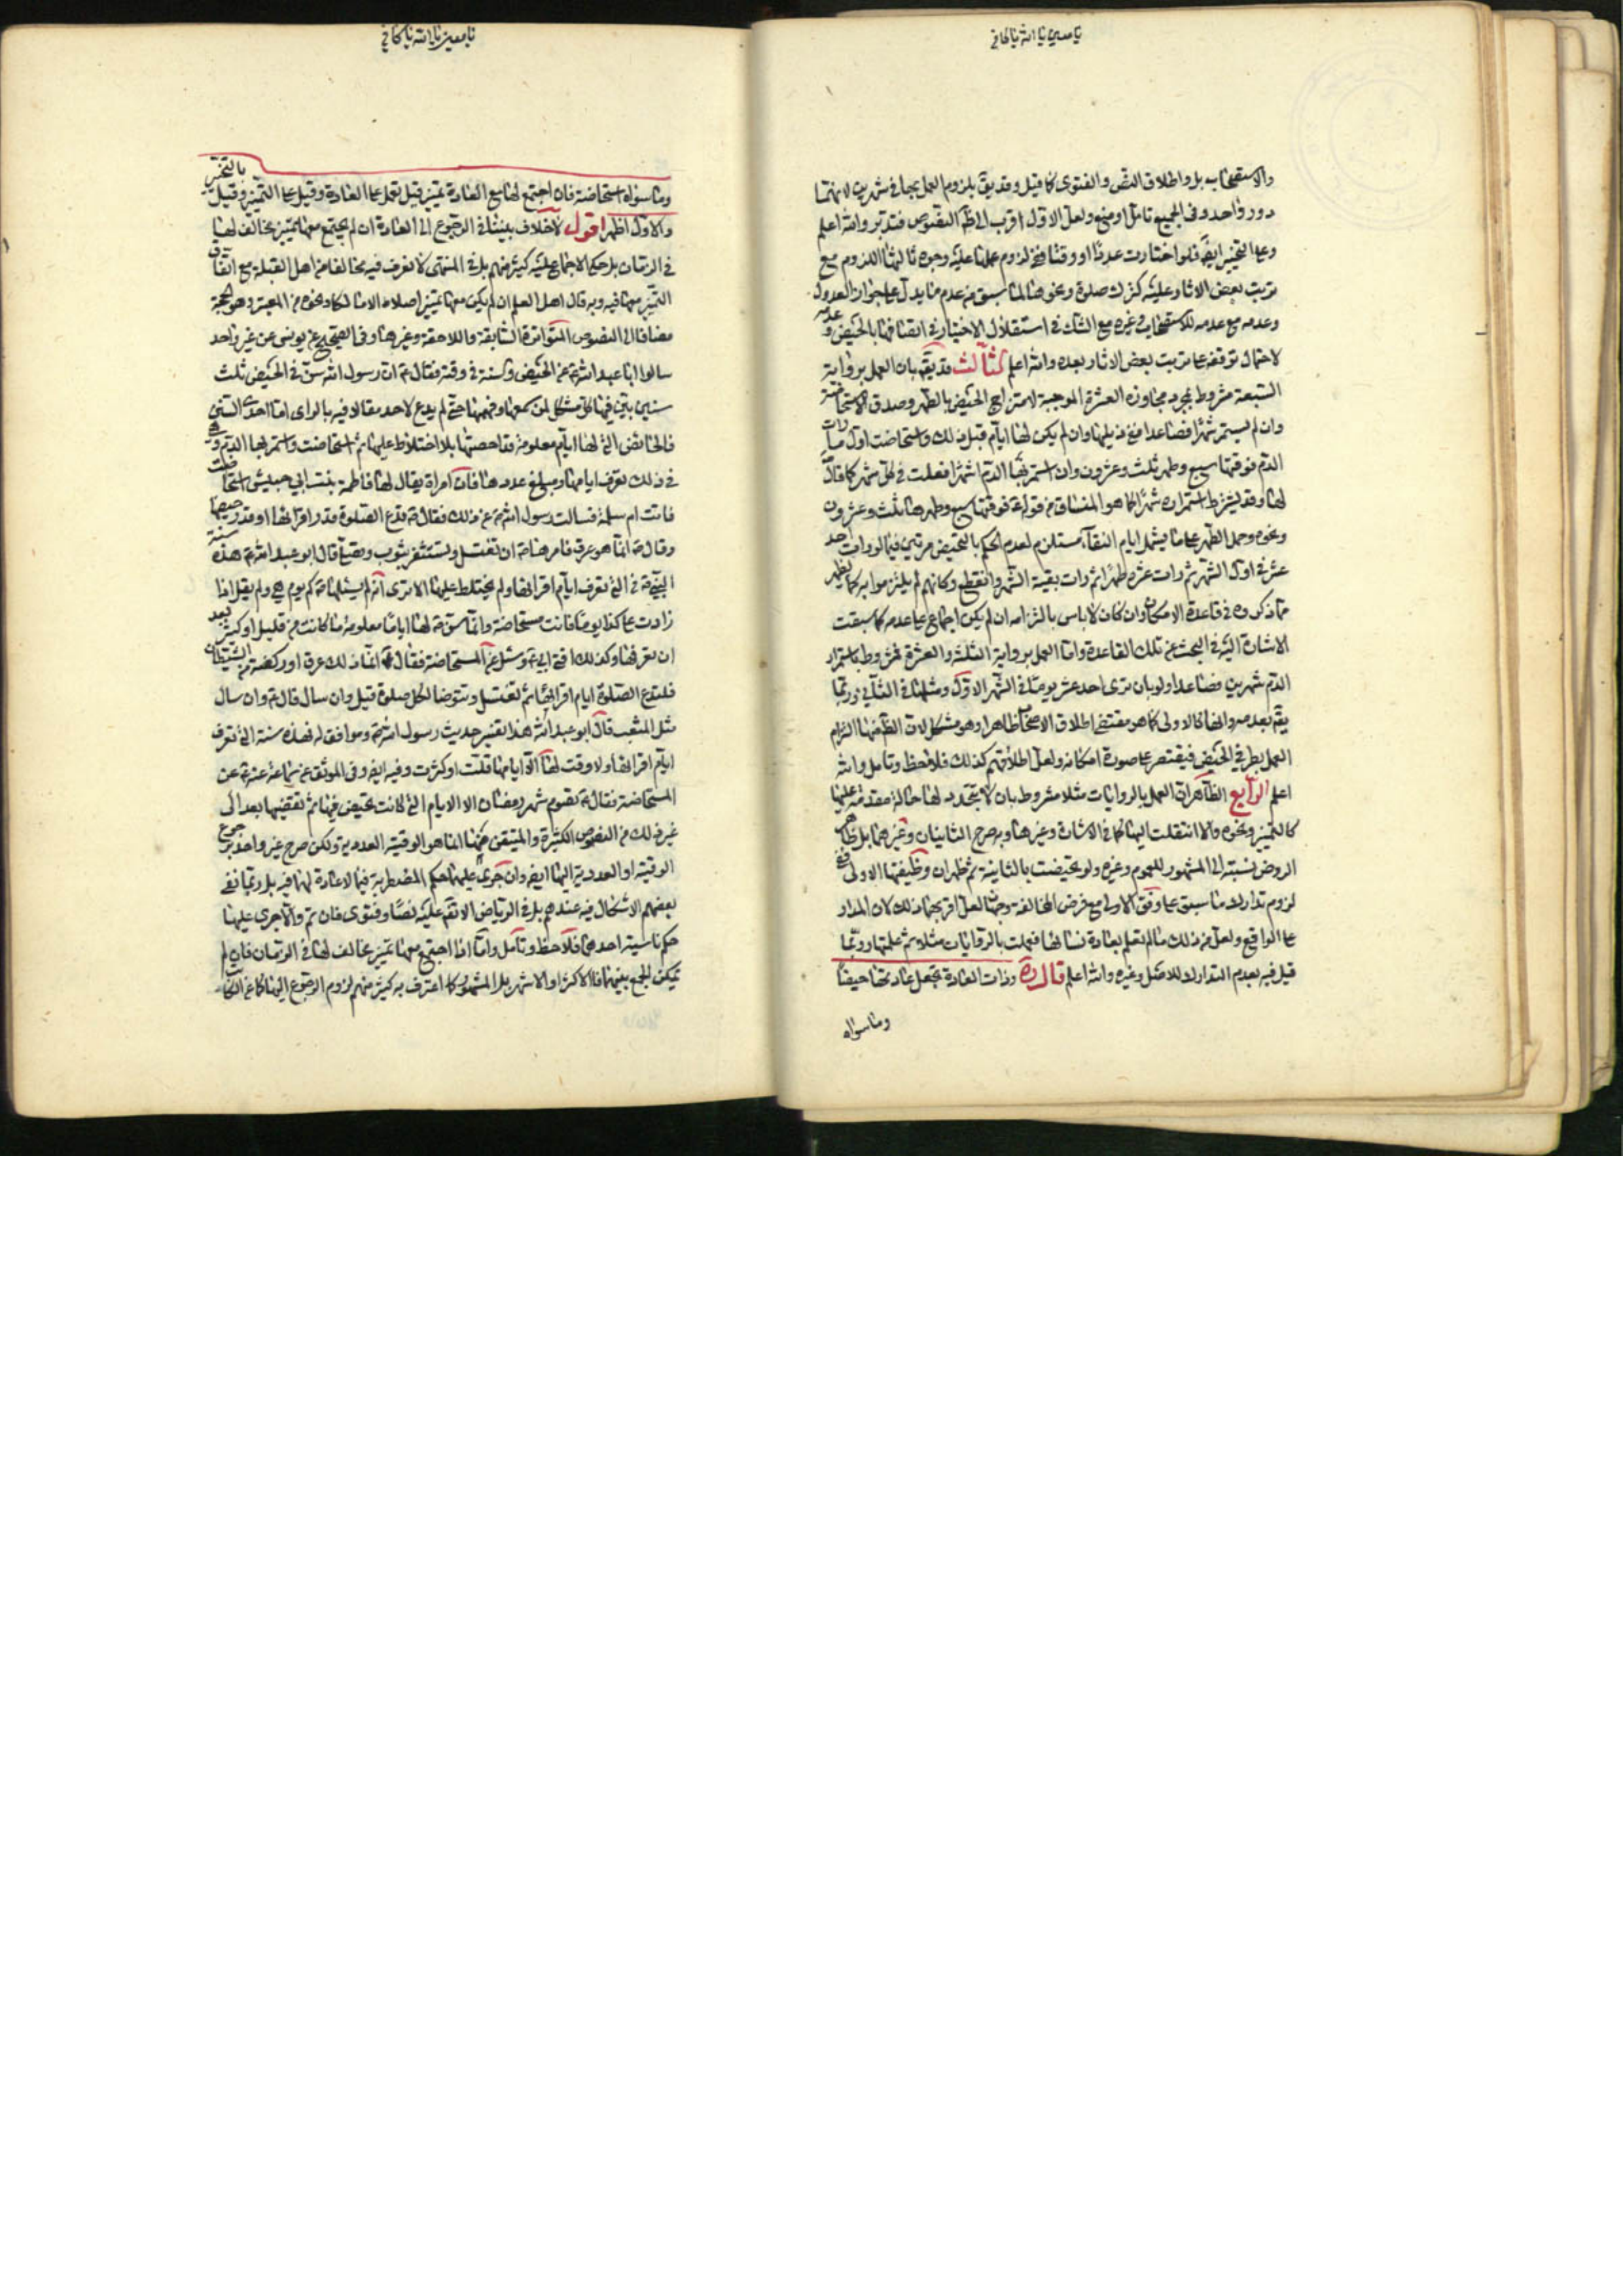 يا معين يا الله يا كافي
والاستصحاب بل واطلاق النص والفتوى كما قيل وقد يق بلزوم العمل بها في شهرين لانهما
دور واحد وفي الجميع تامل او منع ولعل الاول اقرب الى ظ النصوص فتدبر والله اعلم
وعلى التخيير ايضا فلو اختارت عددا او وقتا ففي لزوم عملها عليه وجوه ثالثها اللزوم مع
ترتب بعض الاثار عليه كترك صلوة ونحوها لما سبق من عدم ما يدل على جواز العدول
وعدمه مع عدمه للاستصحاب في غيره مع الشك في استقلال الاختيار في اتصافها بالحيض و عدمه
لاحتمال توقفه على ترتب بعض الاثار بعده والله اعلم الثالث قد يق بان العمل برواية
السبعة مشروط بمجرد مجاوزه العشرة الموجبة لامتزاج الحيض بالطهر وصدق الاستحاضة
وان لم يستمر شهرا فصاعدا ففي ذيلها وان لم يكن لها ايام قبل ذلك واستحاضت اول ما رات
الدم فوقتها سبع وطهر ثلث وعشرون وان استمر بها الدم اشهرا فعلت في كل شهر كما قال
لها وقد يشترط استمراره شهرا كما هو المنساق من قوله فوقتها سبع وطهرها ثلث وعشرون
ونحوه وحمل الطهر على ما يشمل ايام النقاء مستلزم لعدم الحكم بالتحيض مرتين فيما لو رات احد
عشر في اول الشهر ثم رات عشرة طهرا ثم رات بقية الشهر وانقطع وكانهم لم يلتزموا به كما يظهر
مما ذكروه في قاعدة الامكان وان كان لا باس بالتزامه ان لم يكن اجماع على عدمه كما سبقت
الاشارة اليه في البحث عن تلك القاعدة واما العمل برواية الثلثة والعشرة فمشروط باستمرار
الدم شهرين فصاعدا ولو بان ترى احد عشر يوما في الشهر الاول ومثلها في الثاني وربما
يق بعدمه وانها كالاولى كما هو مقتضى اطلاق الاصحاب ظاهرا وهو مشكل لان الظ منها التزام
العمل بطرفي الحيض فيقتصر على صورة امكانه ولعل اطلاقهم كذلك فلاحظ وتامل والله
اعلم الرابع الظاهر ان العمل بالروايات مثلا مشروط بان لا يتجدد لها حالة مقدمة عليها
كالتميز ونحوه والا انتقلت اليها كما في الاشارة وغيرها وبه صرح الثانيان وغيرهما بل ظاهر
الروض نسبته الى المشهور للعموم وغيره ولو تحيضت بالثانية ثم ظهر ان وظيفتها الاولى ففي
لزوم تدارك ما سبق على وفق الاولى مع فرض المخالفة وجهان لعل اقربهما ذلك لان المدار
على الواقع ولعل من ذلك ما لم تعلم بعادة نسائها فعملت بالروايات مثلا ثم علمتها وربما
قيل فيه بعدم التدارك للاصل وغيره والله اعلم قال ره وذات العادة تجعل عادتها حيضا
وما سواه
يا معين يا الله يا كافي
وما سواه استحاضة فان اجتمع لها مع العادة تميز قيل تعمل على العادة وقيل على التميز وقيل بالتخيير
والاول اظهر اقول لا خلاف بيننا في الرجوع الى العادة ان لم يجتمع معها تميز مخالف لها
في الزمان بل حكى الاجماع عليه كثير منهم بل في المنتهى لا نعرف فيه مخالفا من اهل القبلة مع اتفاق
التميز معها فيه وبه قال اهل العلم ان لم يكن معها تميز اصلا الا مالكا ونحوه في المعتبر وهو الحجة
مضافا الى النصوص المتواترة السابقة واللاحقة وغيرها وفي الصحيح عن يونس عن غير واحد
سالوا ابا عبد الله ع عن الحيض والسنة في وقته فقال ع ان رسول الله سن في الحيض ثلث
سنن بين فيها كل مشكل لمن سمعها وفهمها حتى لم يدع لاحد مقالا فيه بالراى اما احدى السنن
فالحائض التي لها ايام معلومة قد احصتها بلا اختلاط عليها ثم استحاضت واستمر بها الدم وهي
في ذلك تعرف ايامها ومبلغ عددها فان امراة يقال لها فاطمة بنت ابي حبيش استحاضت
فاتت ام سلمة فسالت رسول الله ص عن ذلك فقال ص تدع الصلوة قدر اقرائها او قدر حيضها
وقال ص انما هو عرق فامرها ص ان تغتسل وتستثفر بثوب وتصلي قال ابو عبد الله ع هذه سنة
النبي ص في التي تعرف ايام اقرائها ولم يختلط عليها الا ترى انه لم يسئلها ص كم يوم هي ولم يقل اذا
زادت على كذا يوما فانت مستحاضة وانما سن ص لها اياما معلومة ما كانت من قليل او كثير بعد
ان تعرفها وكذلك افتى ابي ع وسئل عن المستحاضة فقال ع انما ذلك عرق او ركضة من الشيطان
فلتدع الصلوة ايام اقرائها ثم تغتسل وتتوضا لكل صلوة قيل وان سال قال ع وان سال
مثل المثعب قال ابو عبد الله هذا تفسير حديث رسول الله ص وموافق له فهذه سنة التي تعرف
ايام اقرائها ولا وقت لها الا ايامها قلت او كثرت وفيه ايضا وفي الموثق عن سماعة عنه ع عن
المستحاضة فقال ع تصوم شهر رمضان الا الايام التي كانت تحيض فيها ثم تقضيها بعد الى
غير ذلك من النصوص الكثيرة والمتيقن منها انما هو الوقتية العددية ولكن صرح غير واحد برجوع
الوقتية او العددية اليها ايضا وان جرى عليهما حكم المضطربة فيما لا عادة لهما فيه بل ربما نفى
بعضهم الاشكال فيه عندهم بل في الرياض الاتفاق عليه نصا وفتوى فان تم والا جرى عليها
حكم ناسية احدهما فلاحظ وتامل واما اذا اجتمع معها تميز مخالف لها في الزمان فان لم
يمكن الجمع بينهما فالاكثر او الاشهر بل المشهور كما اعترف به كثير منهم لزوم الرجوع اليها كما عن